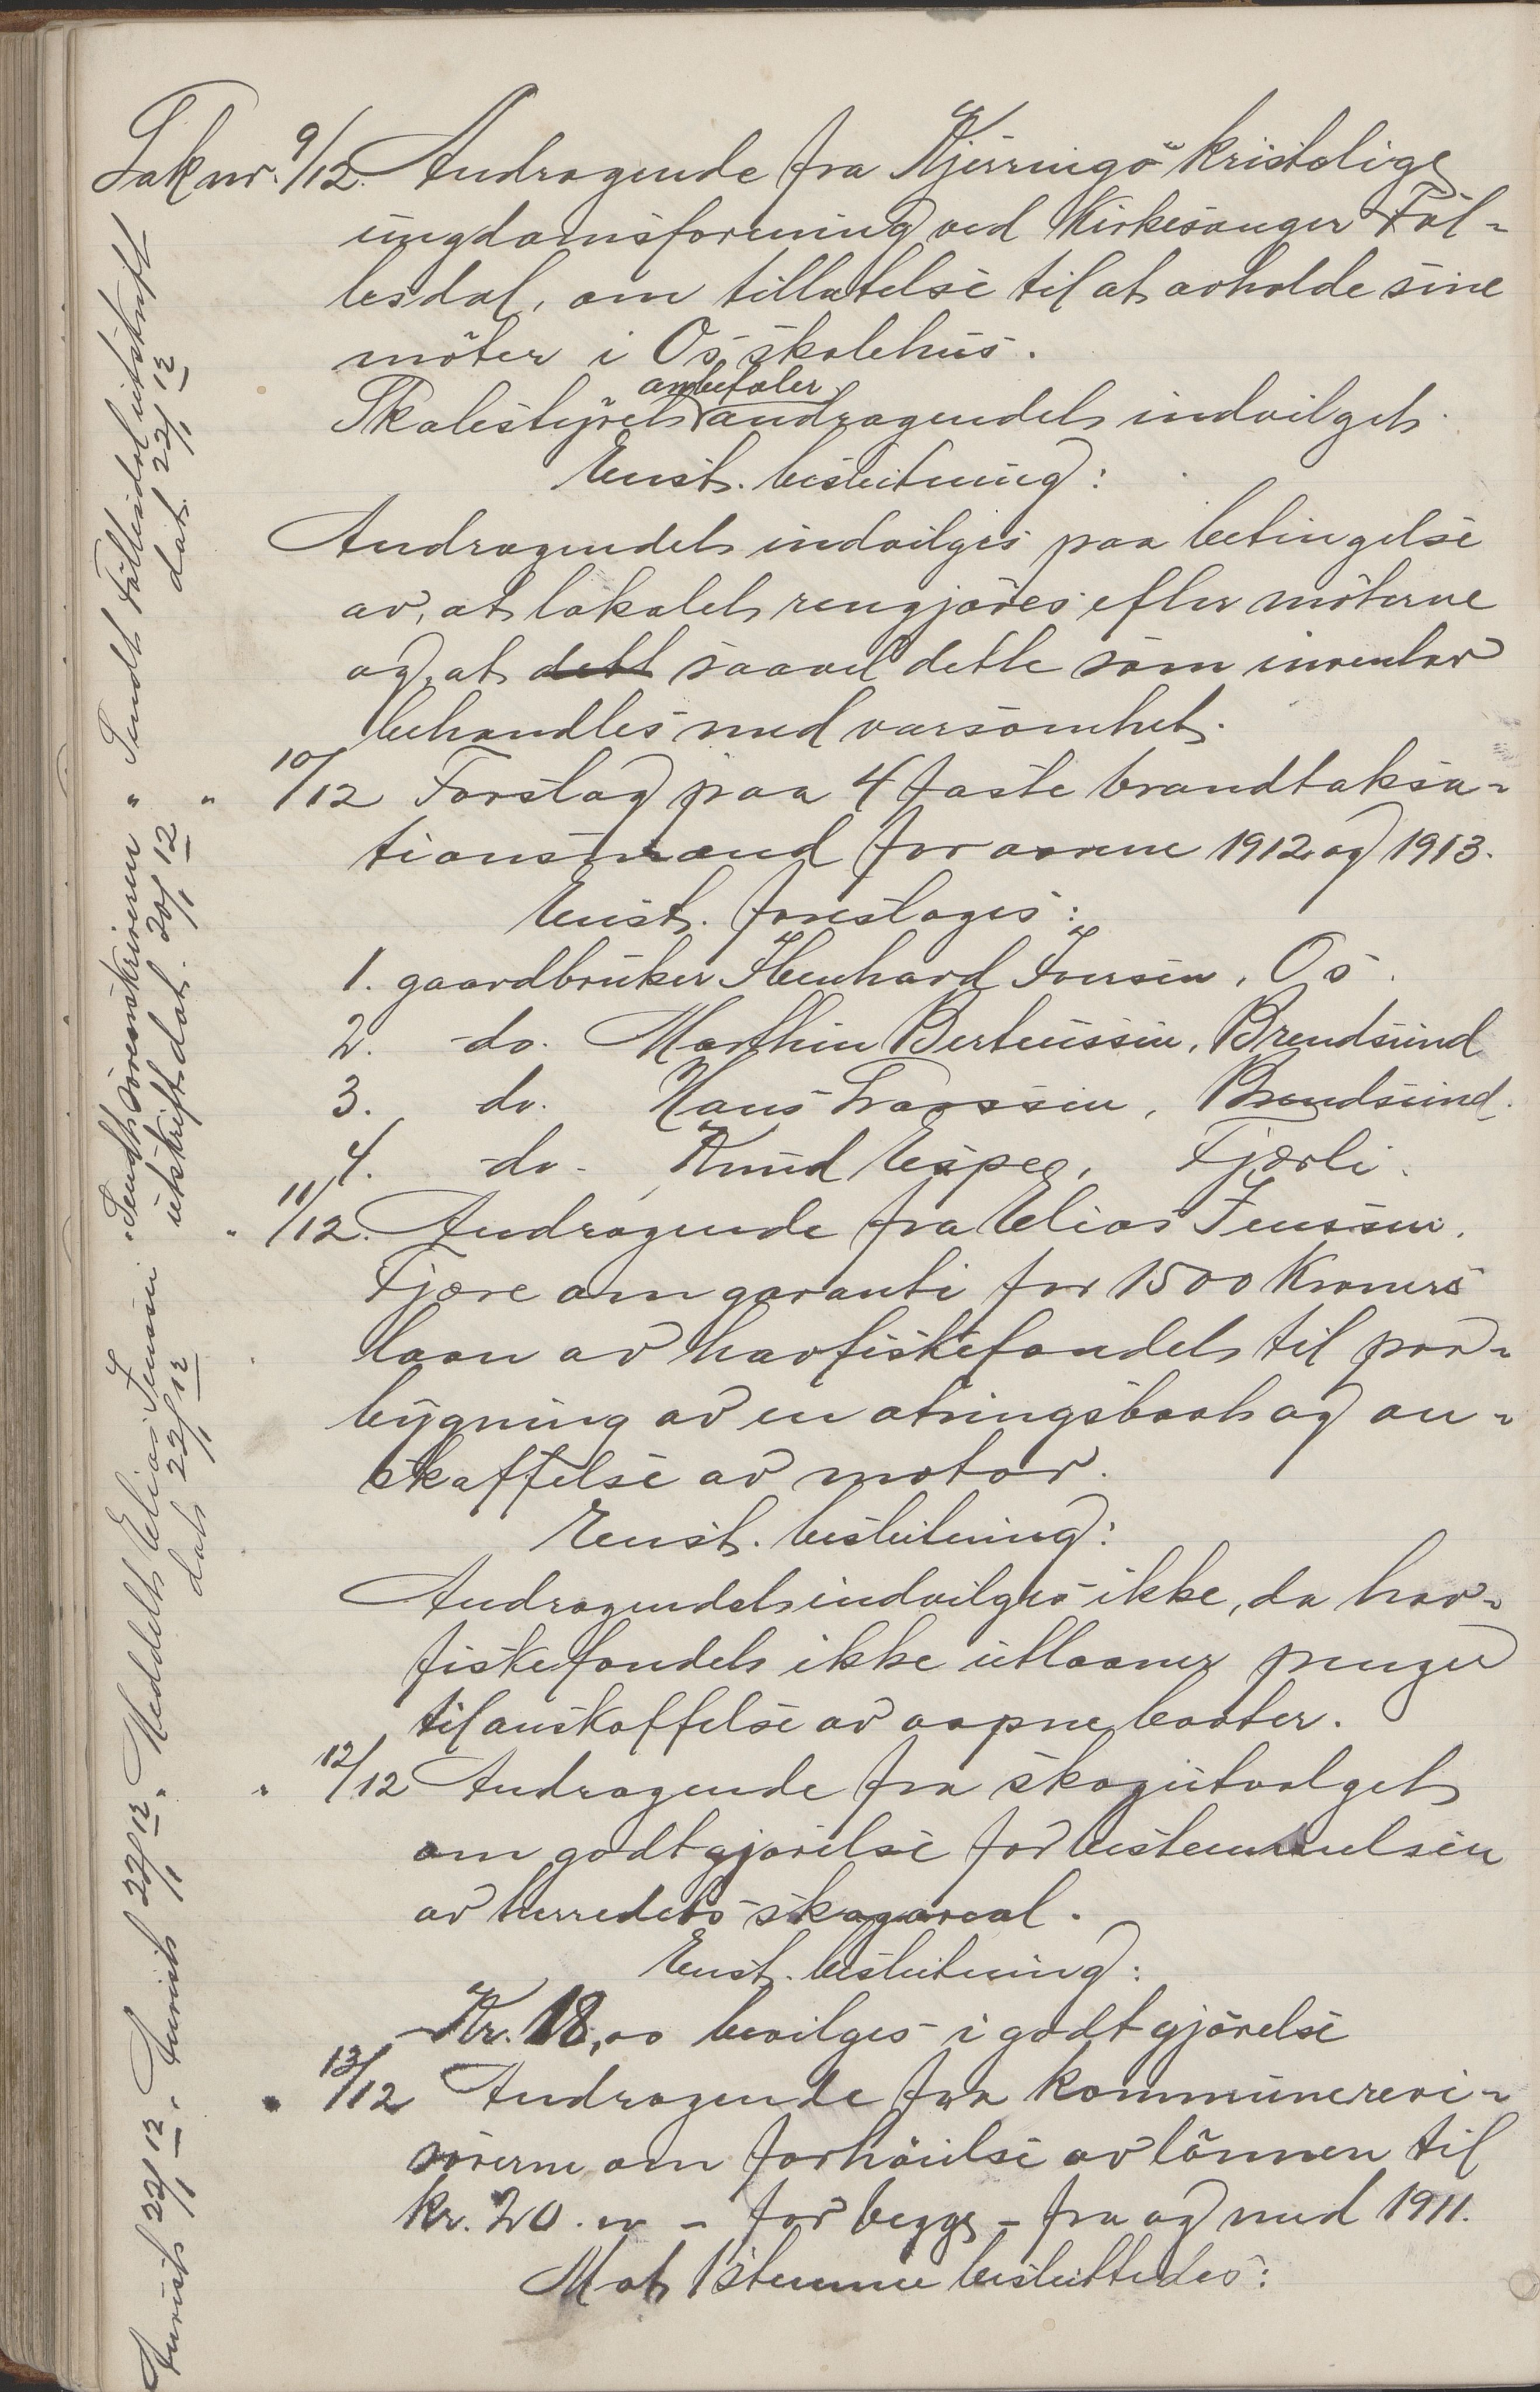 Sak nr. 9/12. Andragende fra Kjerringö kristelige
ungdomsforening ved Kirkesanger Föl-
lesdal, om tillatelse til at avholde sine
möter i Os skolehus.
anbefaler
Skolestyret andragendet indvilget.
Enst. beslutning:
Andragendet indvilges paa betingelse
av, at lokalet rengjöres efter möterne
og, at dett saavel dette som inventar
behandles med varsomhet.
" 10/12 Forslag paa 4 faste brandtaksa-
tionsmænd for aarene 1912 og 1913.
Enst. foreslages:
1. gaardbruker Henhard Iversen, Os.
2. do. Marthin Berteussen, Brendsund
3. do. Hans Larssen, Brendsund.
4. do. Knud Espes, Fjærli.
" 11/12. Andragende fra Elias Jenssen,
Fjære om garanti for 1500 Kroners
laan av havfiskefondet til paa-
bygning av en otringsbaat og an-
skaffelse av motor.
Enst. beslutning:
Andragendet indvilges ikke, da hav-
fiskefondet ikke utlaaner penger
til anskaffelse av aapne baater.
" 12/12 Andragende fra skogutvalget
om godtgjörelse for bestemmelsen
av herredets skogareal.
Enst. beslutning:
Kr. 18,00 bevilges i godtgjörelse
" 13/12 Andragende fra kommunerevi-
sörerne om forhöielse av lönnen til
kr. 20.00 - for begge - fra og med 1911.
Mot 1 stemme besluttedes:
Avvist 22/1 12. Avvist 22/1 12. Meddelt Elias Jenssen
dat 22/1 12
"Sendt sorenskriveren
utskrift dat. 20/1 12
" Sendt Föllesdal utskrift
dat. 22/1 12